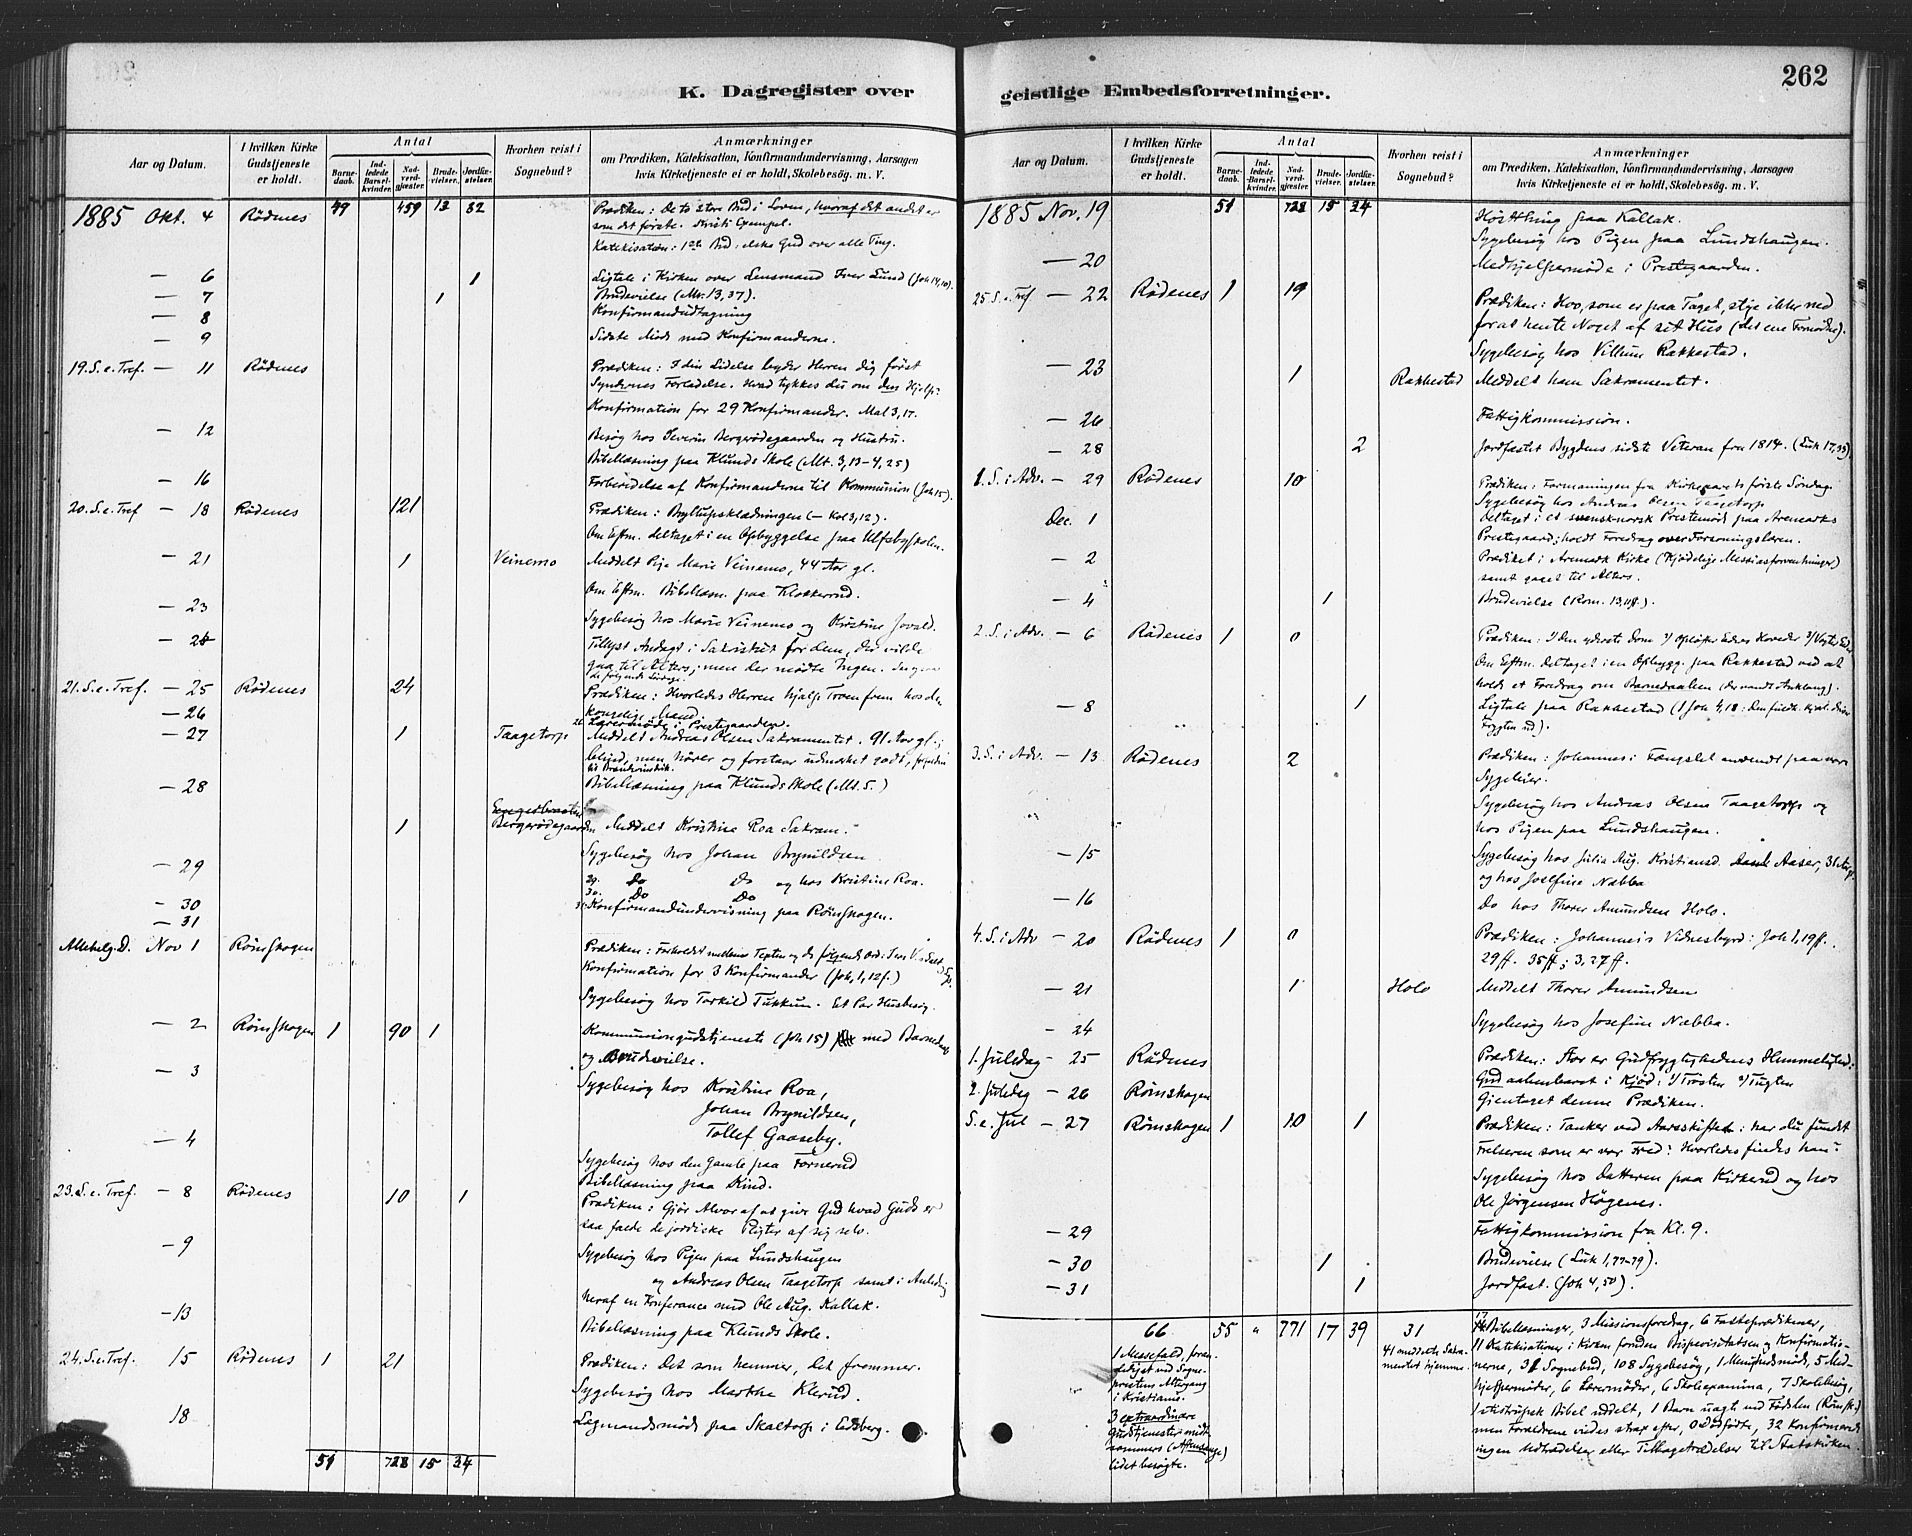 K. Dagregister over
Aar og Datum.
I hvilken Kirke Gudstjeneste er holdt.
Antal
Barnedaab.
Indledede Barselkvinder.
Nadverdgjæster.
Brudevielser.
Jordfæstelser.
Hvorhen reist i Sognebud?
Anmærkninger
om Prædiken, Katekisation, Konfirmandundervisning, Aarsagen
hvis Kirketjeneste ei er holdt, Skolebesøg. m. V.
1885 Okt. 4 Rödenes 49 459 13 32 Prædiken: De to store Bud i Loven, hvoraf det andet er
som det første. Kristi Exempel.
Katekisation: 1ste Bud: elske Gud over alle Ting.
— 6 1 Ligtale i Kirken over Lensmand Iver Lund (Joh 14,10).
— 7 1 Brudevielse (Mr. 13,37).
— 8 Konfirmandudtagning
— 9 Sidste Møde med Konfirmanderne.
19. S. e. Tref. — 11 Rödenes Prædiken: I din Lidelse byder Herren dig først
Syndernes Forladelse. Hvad tykkes du om den Hjelp?
Konfirmation for 29 Konfirmander. Mal 3,17.
— 12 Besøg hos Severin Bergerødegaarden og Hustru.
Bibellæsning paa Klunds Skole (Mt. 3,13-4,25)
— 16 Forberedelse af Konfirmanderne til Kommunion (Joh 15).
20. S. e. Tref — 18 Rödenes 121 Prædiken: Bryllupsklædningen (— Kol 3,12).
Om Eftm. deltaget i en Opbyggelse paa Ulfsbyskolen.
— 21 1 Veinemo Meddelt Pige Marie Veinemo, 44 Aar gl.
Om Eftm. Bibellæsn. paa Klokkerud.
— 23 Sygebesøg hos Marie Veinemo og Kristine
— 24 Tillyst Andagt i Sakristiet for dem, der vilde
gaa til Alters; men der mødte Ingen. Ingen
de følgende Lørdage.
21. S. e. Tref. — 25 Rödenes 24 Prædiken: Hvorledes Herren hjalp Troen frem hos den
kongelige Mand.
— 26 26 Lærermøde i Prestegaarden.
— 27 1 Taagetorp Meddelt Andreas Olsen Sakramentet. 91 Aar gl.;
blind, men hører og forstaar udmerket godt,
— 28 Bibellæsning paa Klunds Skole (Mt. 5.)
1 Bergerødegaarden Meddelt Kristine Roa Sakram.
Sygebesøg hos Johan Brynildsen
— 29 29. Do Do og hos Kristine Roa.
— 30 30. Do Do
— 31 31. Konfirmandundervisning paa Rømskogen.
Allehelg. D. Nov 1 Rømskogen Prædiken: Forholdet mellem Texten og de følgende Ord: Jers
Konfirmation for 3 Konfirmander (Joh, 1, 12f.)
Sygebesøg hos Torkild Tukkum. Et Par Husbesøg.
— 2 Rømskogen 1 90 1 Kommuniongudstjeneste (Joh 15) med Barnedaab
og Brudevielse.
— 3 Sygebesøg hos Kristine Roa,
Johan Brynildsen,
Tollef Gaaseby.
— 4 Sygebesøg hos den Gamle paa Fornerud
Bibellæsning paa Kind.
23. S. e. Tref. — 8 Rödenes 10 1 Prædiken: Gjør Alvor af at give Gud hvad Guds er
saa falde de jordiske Pligter af sig selv.
— 9 Sygebesøg hos Pigen paa Lundshaugen
og Andreas Olsen Taagetorp samt i Anledn.
heraf en Konferance med Ole Aug. Kallak.
— 13 Bibellæsning paa Klunds Skole.
24. S. e. Tref. 15 Rödenes 1 21 Prædiken: Det som hemmer, det frommer.
Sygebesøg hos Marthe Klerud.
18 Lagmandsmøde paa Skaltorp i Eidsberg.
51 728 15 34
geistlige Embedsforretninger.
262
Aar og Datum.
I hvilken Kirke Gudstjeneste er holdt.
Antal
Barnedaab.
Indledede Barselkvinder.
Nadverdgjæster.
Brudevielser.
Jordfæstelser.
Hvorhen reist i Sognebud?
Anmærkninger
om Prædiken, Katekisation, Konfirmandundervisning, Aarsagen
hvis Kirketjeneste ei er holdt, Skolebesøg. m. V.
1885 Nov. 19 51 728 15 34 Høstthing paa Kallak.
Sygebesøg hos Pigen paa Lundshaugen.
— 20 Medhjelpermøde i Prestegaarden.
25. S. e. Tref — 22 Rödenes 1 19 Prædiken: Hvo, som er paa Taget, stige ikke ned
for at hente Noget af sit Hus (det ene Fornødne).
Sygebesøg hos Vilhum Rakkestad.
— 23 1 Rakkestad Meddelt ham Sakramentet.
— 26 Fattigkommission.
— 28 2 Jordfæstet Bygdens sidste Veteran fra 1814. (Luk 17,33)
1. S. i Adv. — 29 Rödenes 10 Prædiken: Formaningen fra Kirkeaarets første Søndag.
Sygebesøg hos Andreas Olsen Taagetorp
Dec. 1 Deltaget i et svensk-norsk Prestemøde paa Aremarks
Prestegaard; holdt Foredrag over Forsoningslæren.
— 2 Prædiket i Aremark Kirke (Kjødelige Messiasforventninger)
samt gaaet til Alters.
— 4 1 Brudevielse (Rom. 13,11ff.).
2. S. i Adv. — 6 Rödenes 1 0 Prædiken: 1/ Den yderste Dom 2/ Opløfter Eders Hoveder 3/ Vogter Eder
Om Eftm. deltaget i en Opbygg. paa Rakkestad ved at
holde et Foredrag om Barnedaaben (der vandt Anklang).
— 8 1 Ligtale paa Rakkestad (1 Joh 4,18: Den fuldk. Kjærl. driver
Frygten ud).
3. S. i Adv. — 13 Rödenes 2 Prædiken: Johannes i Fængslet anvendt paa vore
Sygeleier.
Sygebesøg hos Andreas Olsen Taagetorp og
hos Pigen paa Lundshaugen.
— 15 Sygebesøg hos Julia Aug. Kristiansd. Aaser, 31 Aar gl.
og hos Josefine Næbba
— 16 Do hos Thorer Amundsen Holo.
4. S. i Adv — 20 Rödenes 1 0 Prædiken: Johannes's Vidnesbyrd: Joh 1,19ff.
29ff. 35ff; 3,27ff.
— 21 1 Holo Meddelt Thorer Amundsen
— 24 Sygebesøg hos Josefine Næbba.
1. Juledag — 25 Rödenes Prædiken: Stor er Gudfrygtighedens Hemmelighed:
Gud aabenbaret i Kjød: 1/ Trøsten 2/ Tugten
2. Juledag — 26 Rømskogen Gjentaget denne Prædiken.
S. e. Jul — 27 Rømskogen 1 10 1 Prædiken: Tanker ved Aarsskiftet: har du fundet
Frelseren som er vor Fred? Hvorledes findes han?
Sygebesøg hos Datteren paa Kirkerud og hos
Ole Jörgensen Högenes.
— 29 Fattigkommission fra Kl. 9.
— 30 1 Brudevielse (Luk 1,77-79).
— 31 1 Jordfæst. (Joh 4,50).
66 55 " 771 17 39 31
1 Messefald, foranlediget ved Sogneprestens Altergang i Kristiania.
3 extraordinære Gudstjenester midtsommers (Aftensange) lidet besøgte.
41 meddelte Sakramentet hjemme.
Bibellæsninger, 3 Missionsforedrag, 6 Fasteprædikener,
11 Katekisationer i Kirken foruden Bispevisitatsen og Konfirmationerne,
31 Sognebud, 108 Sygebesøg, 1 Menighedsmøde, 5 Medhjelpermøder,
6 Lærermøder, 6 Skolexamina, 7 Skolebesøg,
1 Bibel uddelt, 1 Barn uægte ved Fødslen (Rømsk.)
men Forældrene viedes strax efter, 0 Dødfødte, 32 Konfirmander,
ingen Udtrædelser eller Tilbagetrædelser til Statskirken